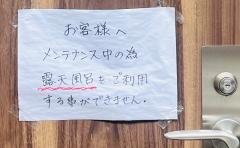 お客様へ
メンテナンス中の為
露天風呂をご利用
する事ができません.